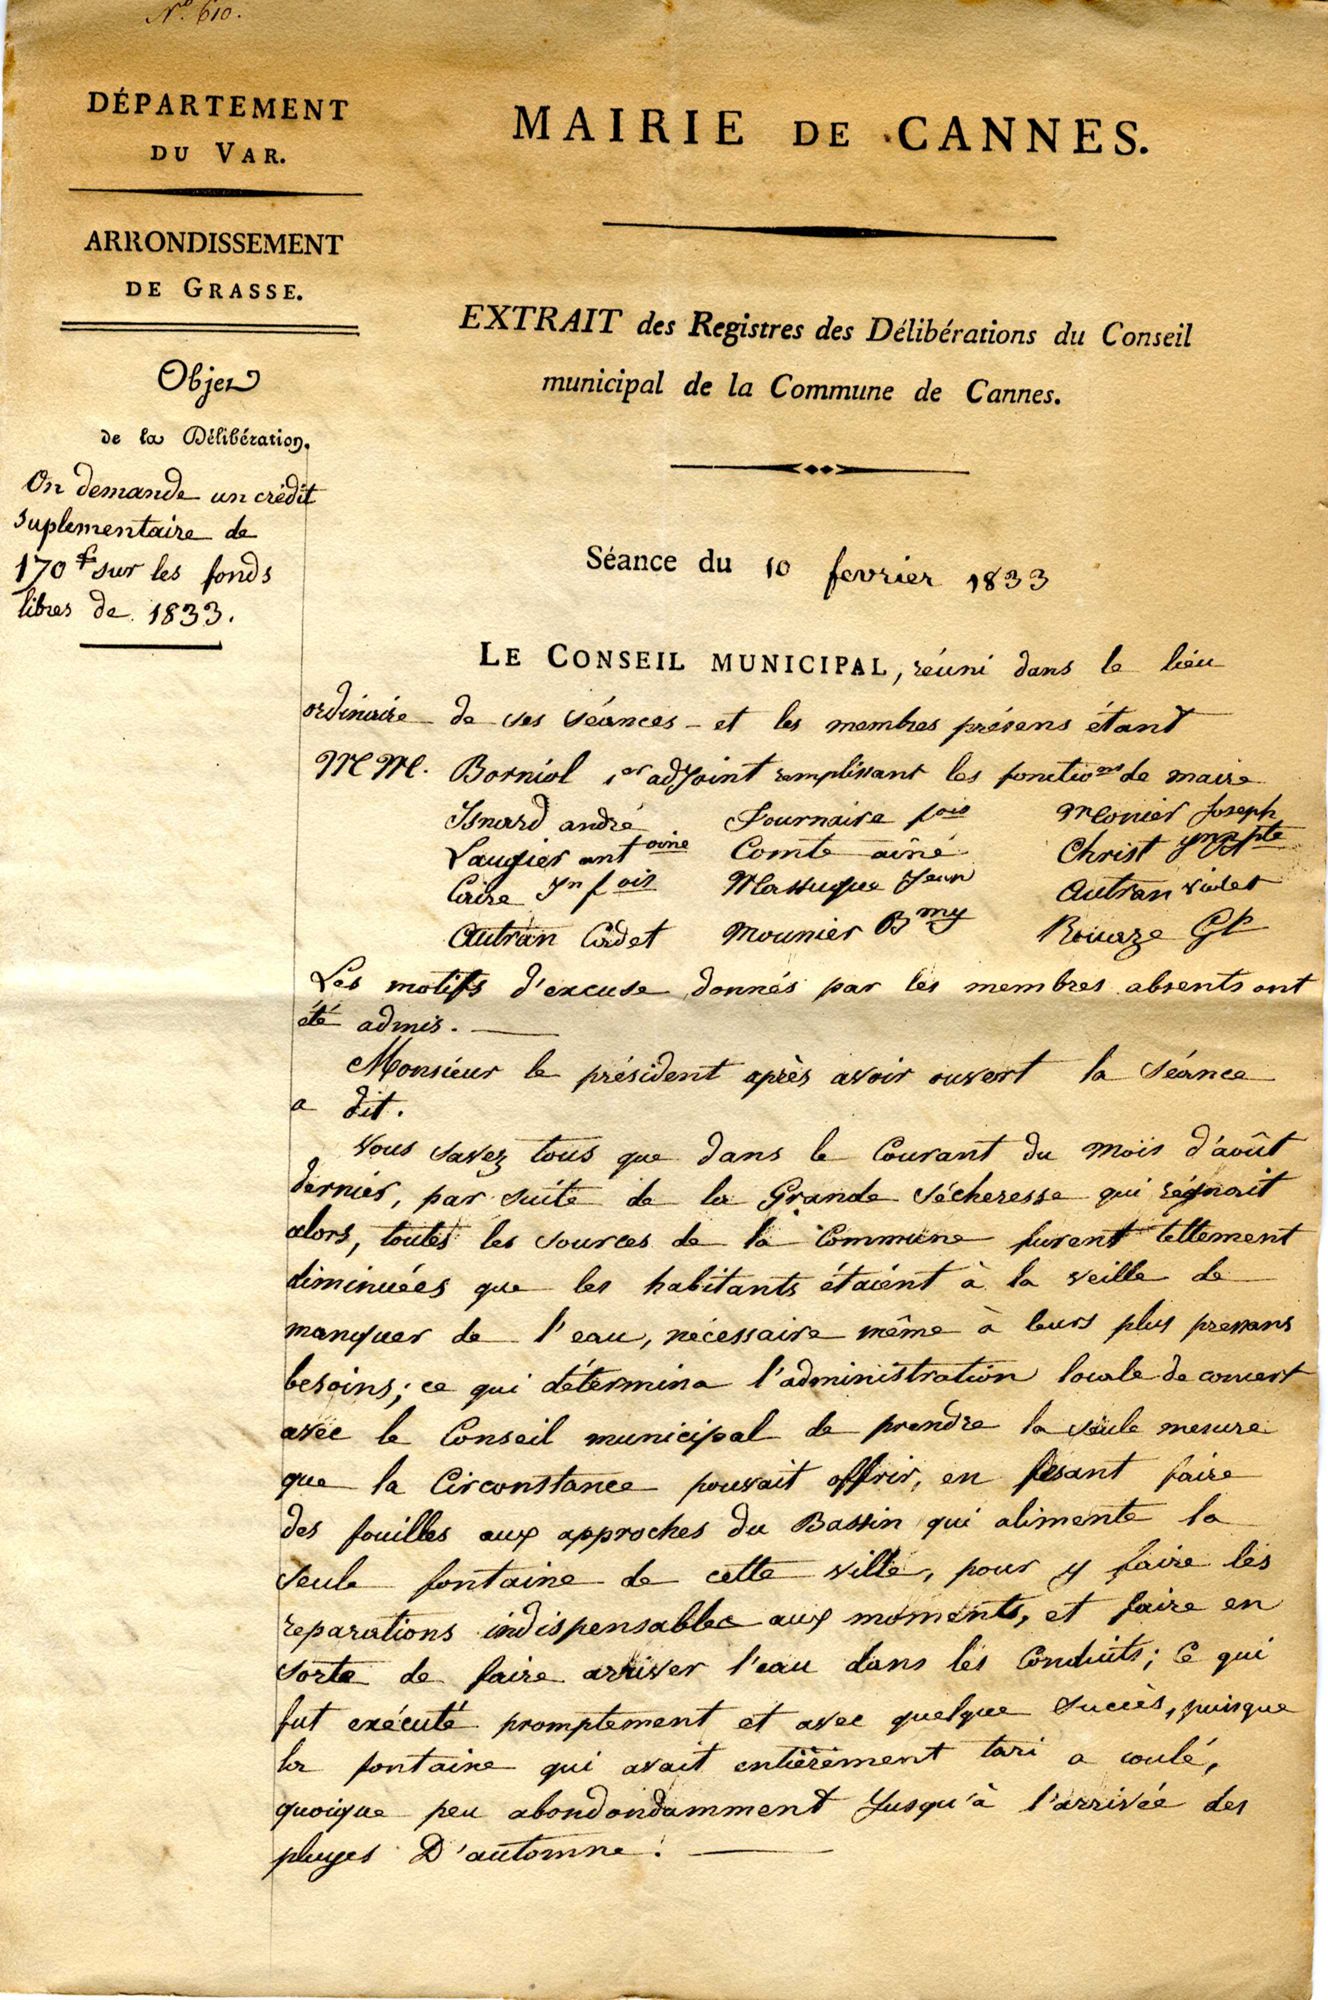 N.° 610.
DÉPARTEMENT
DU VAR.
ARRONDISSEMENT
DE GRASSE.
Objet
de la Délibération.
On demande un crédit
suplementaire de
170 f sur les fonds
libres de 1833.
MAIRIE DE CANNES.
EXTRAIT des Registres des Délibérations du Conseil
municipal de la Commune de Cannes.
Séance du 10 fevrier 1833
LE CONSEIL MUNICIPAL, réuni dans le lieu
ordinaire de ses séances et les membres présens étant
MM. Borniol 1er adjoint remplissant les fonctions de maire
Isnard andré Fournaire fois Monier Joseph
Laugier antoine Comte aîné Christ
Caire Jn fois Massuque Jean Autran violet
Autran Cadet Mounier Bmy Rouaze
Les motifs d'excuse donnés par les membres absents ont
été admis.
Monsieur le président après avoir ouvert la séance
a dit.
Vous savez tous que dans le Courant du mois d'août
dernier, par suite de la Grande sécheresse qui régnait
alors, toutes les sources de la Commune furent tellement
diminuées que les habitants étaient à la veille de
manquer de l'eau, nécessaire même à leurs plus pressans
besoins; ce qui détermina l'administration locale de concert
avec le Conseil municipal de prendre la seule mesure
que la Circonstance pouvait offrir, en fesant faire
des fouilles aux approches du Bassin qui alimente la
seule fontaine de cette ville, pour y faire les
reparations indispensables aux moments, et faire en
sorte de faire arriver l'eau dans les Conduits; Ce qui
fut exécuté promptement et avec quelque succès, puisque
la fontaine qui avait entièrement tari a coulé,
quoique peu abondondamment Jusqu'à l'arrivée des
pluyes D'automne.